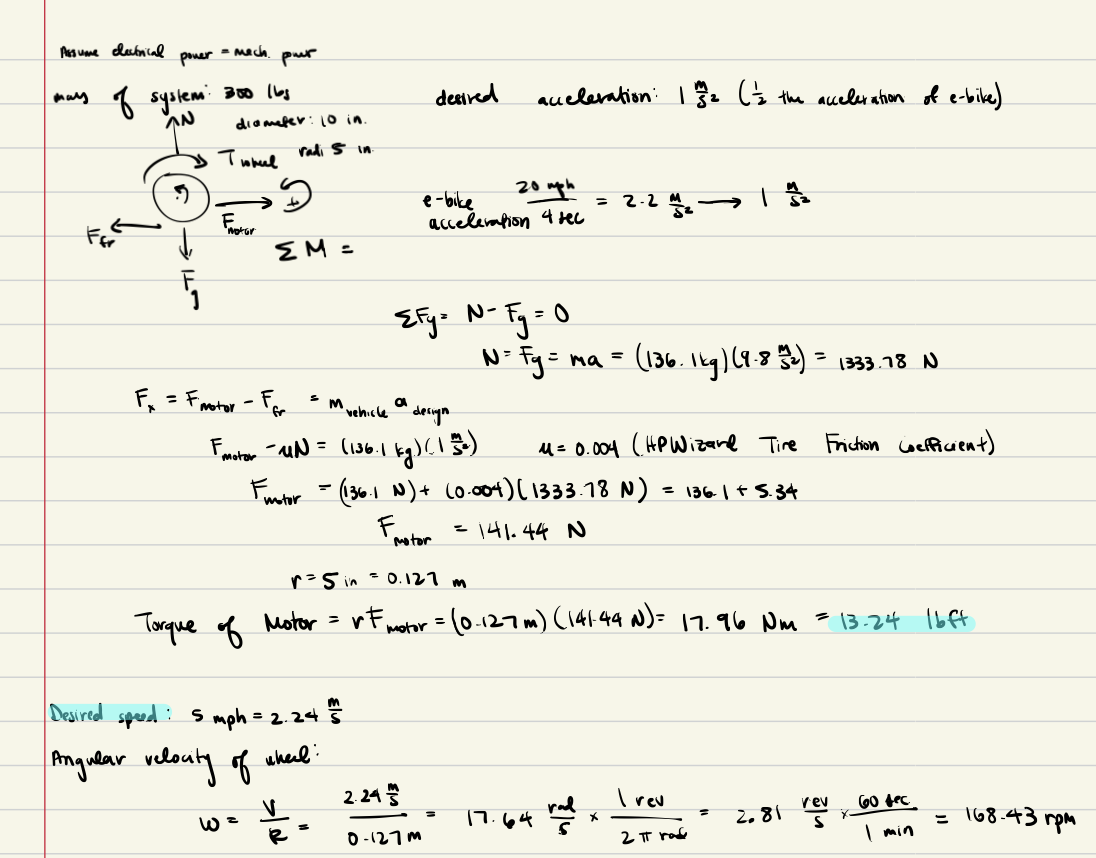 Assume electrical power = mech. power
mass of system: 300 lbs
desired acceleration: 1 m/s² (1/2 the acceleration of e-bike)
N
diameter: 10 in.
T wheel radi 5 in.
F fr
F motor
+
F g
ΣM =
e-bike acceleration 20 mph / 4 sec = 2.2 m/s² → 1 m/s²
ΣFy = N - Fg = 0
N = Fg = ma = (136.1 kg)(9.8 m/s²) = 1333.78 N
Fx = F motor - F fr = m vehicle a design
F motor - uN = (136.1 kg)(1 m/s²) u = 0.004 (HPWizard Tire Friction Coefficient)
F motor = (136.1 N) + (0.004)(1333.78 N) = 136.1 + 5.34
F motor = 141.44 N
r = 5 in = 0.127 m
Torque of Motor = r F motor = (0.127 m)(141.44 N) = 17.96 Nm = 13.24 lbft
Desired speed: 5 mph = 2.24 m/s
Angular velocity of wheel:
ω = V/R = 2.24 m/s / 0.127 m = 17.64 rad/s × 1 rev / 2π rad = 2.81 rev/s × 60 sec / 1 min = 168.43 rpm